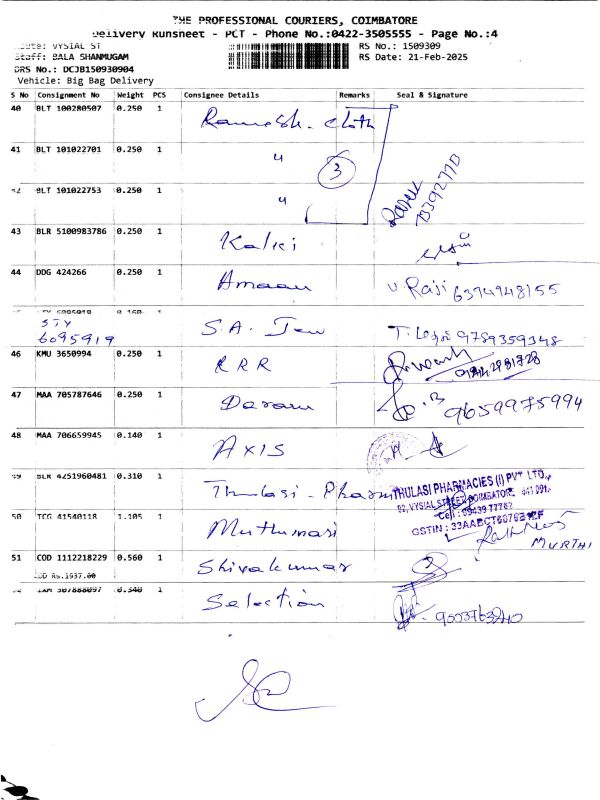 THE PROFESSIONAL COURIERS, COIMBATORE
Delivery Runsheet - PCT - Phone No.:0422-3505555 - Page No.:4
Route: VYSIAL ST RS No.: 1509309
Staff: BALA SHANMUGAM RS Date: 21-Feb-2025
DRS No.: DCJB150930904
Vehicle: Big Bag Delivery
S No Consignment No Weight PCS Consignee Details Remarks Seal & Signature
40 BLT 100280507 0.250 1 Ramesh. cloth
41 BLT 101022701 0.250 1 " 3
52 BLT 101022753 0.250 1 "
43 BLR 5100983786 0.250 1 Kalki
44 DDG 424266 0.250 1 Amaan V. Raji 6374948155
STY 6095919 0.160 1
STY
6095919 S.A. Jew 9789359348
46 KMU 3650994 0.250 1 RRR
47 MAA 705787646 0.250 1 9659975994
48 MAA 706659945 0.140 1 AXIS
49 BLR 4251960481 0.310 1 Thulasi - Pharm THULASI PHARMACIES (I) PVT LTD.,
92, VYSIAL STREET, COIMBATORE, 641 001.
Cell : 99439 77762
50 TCG 41540118 1.105 1 Muthumari
GSTIN : MURTHI
51 COD 1112218229 0.560 1 Shivakumar
COD Rs.1937.00
307888097 0.340 1 Selection 9003763240